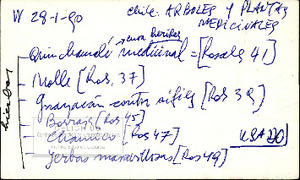 W 29-1-90
Chile. ARBOLES Y PLANTAS MEDICINALES
cura heridas
Quinchamalí medicinal = [Rosales 41]
Molle [Ros, 37]
Guayacán contra sífilis [Ros 39]
Borraja [Ros 45]
[Ros 47]
USADO
Yerbas maravillosas [Ros 49]